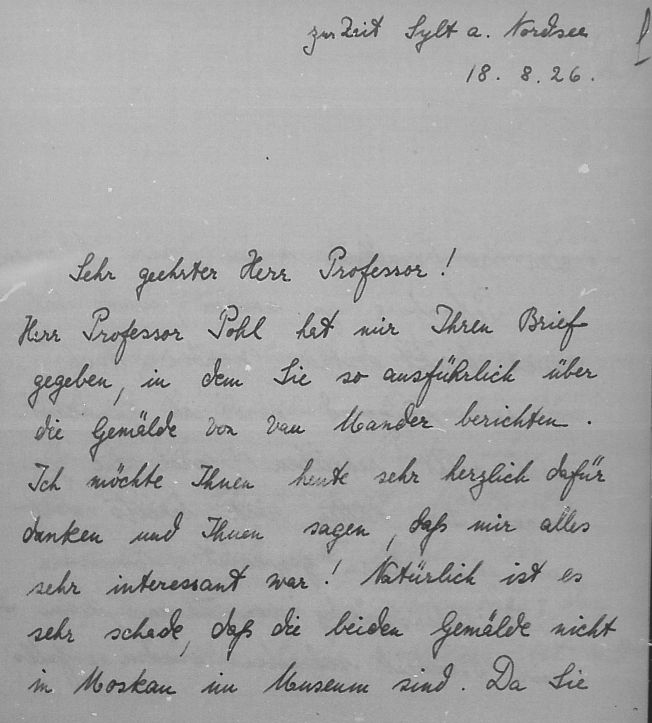 zur Zeit Sylt a. Nordsee
18. 8. 26.
Sehr geehrter Herr Professor!
Herr Professor Pohl hat mir Ihren Brief
gegeben, in dem Sie so ausführlich über
die Gemälde von van Mander berichten.
Ich möchte Ihnen heute sehr herzlich dafür
danken und Ihnen sagen, daß mir alles
sehr interessant war! Natürlich ist es
sehr schade, daß die beiden Gemälde nicht
in Moskau im Museum sind. Da Sie